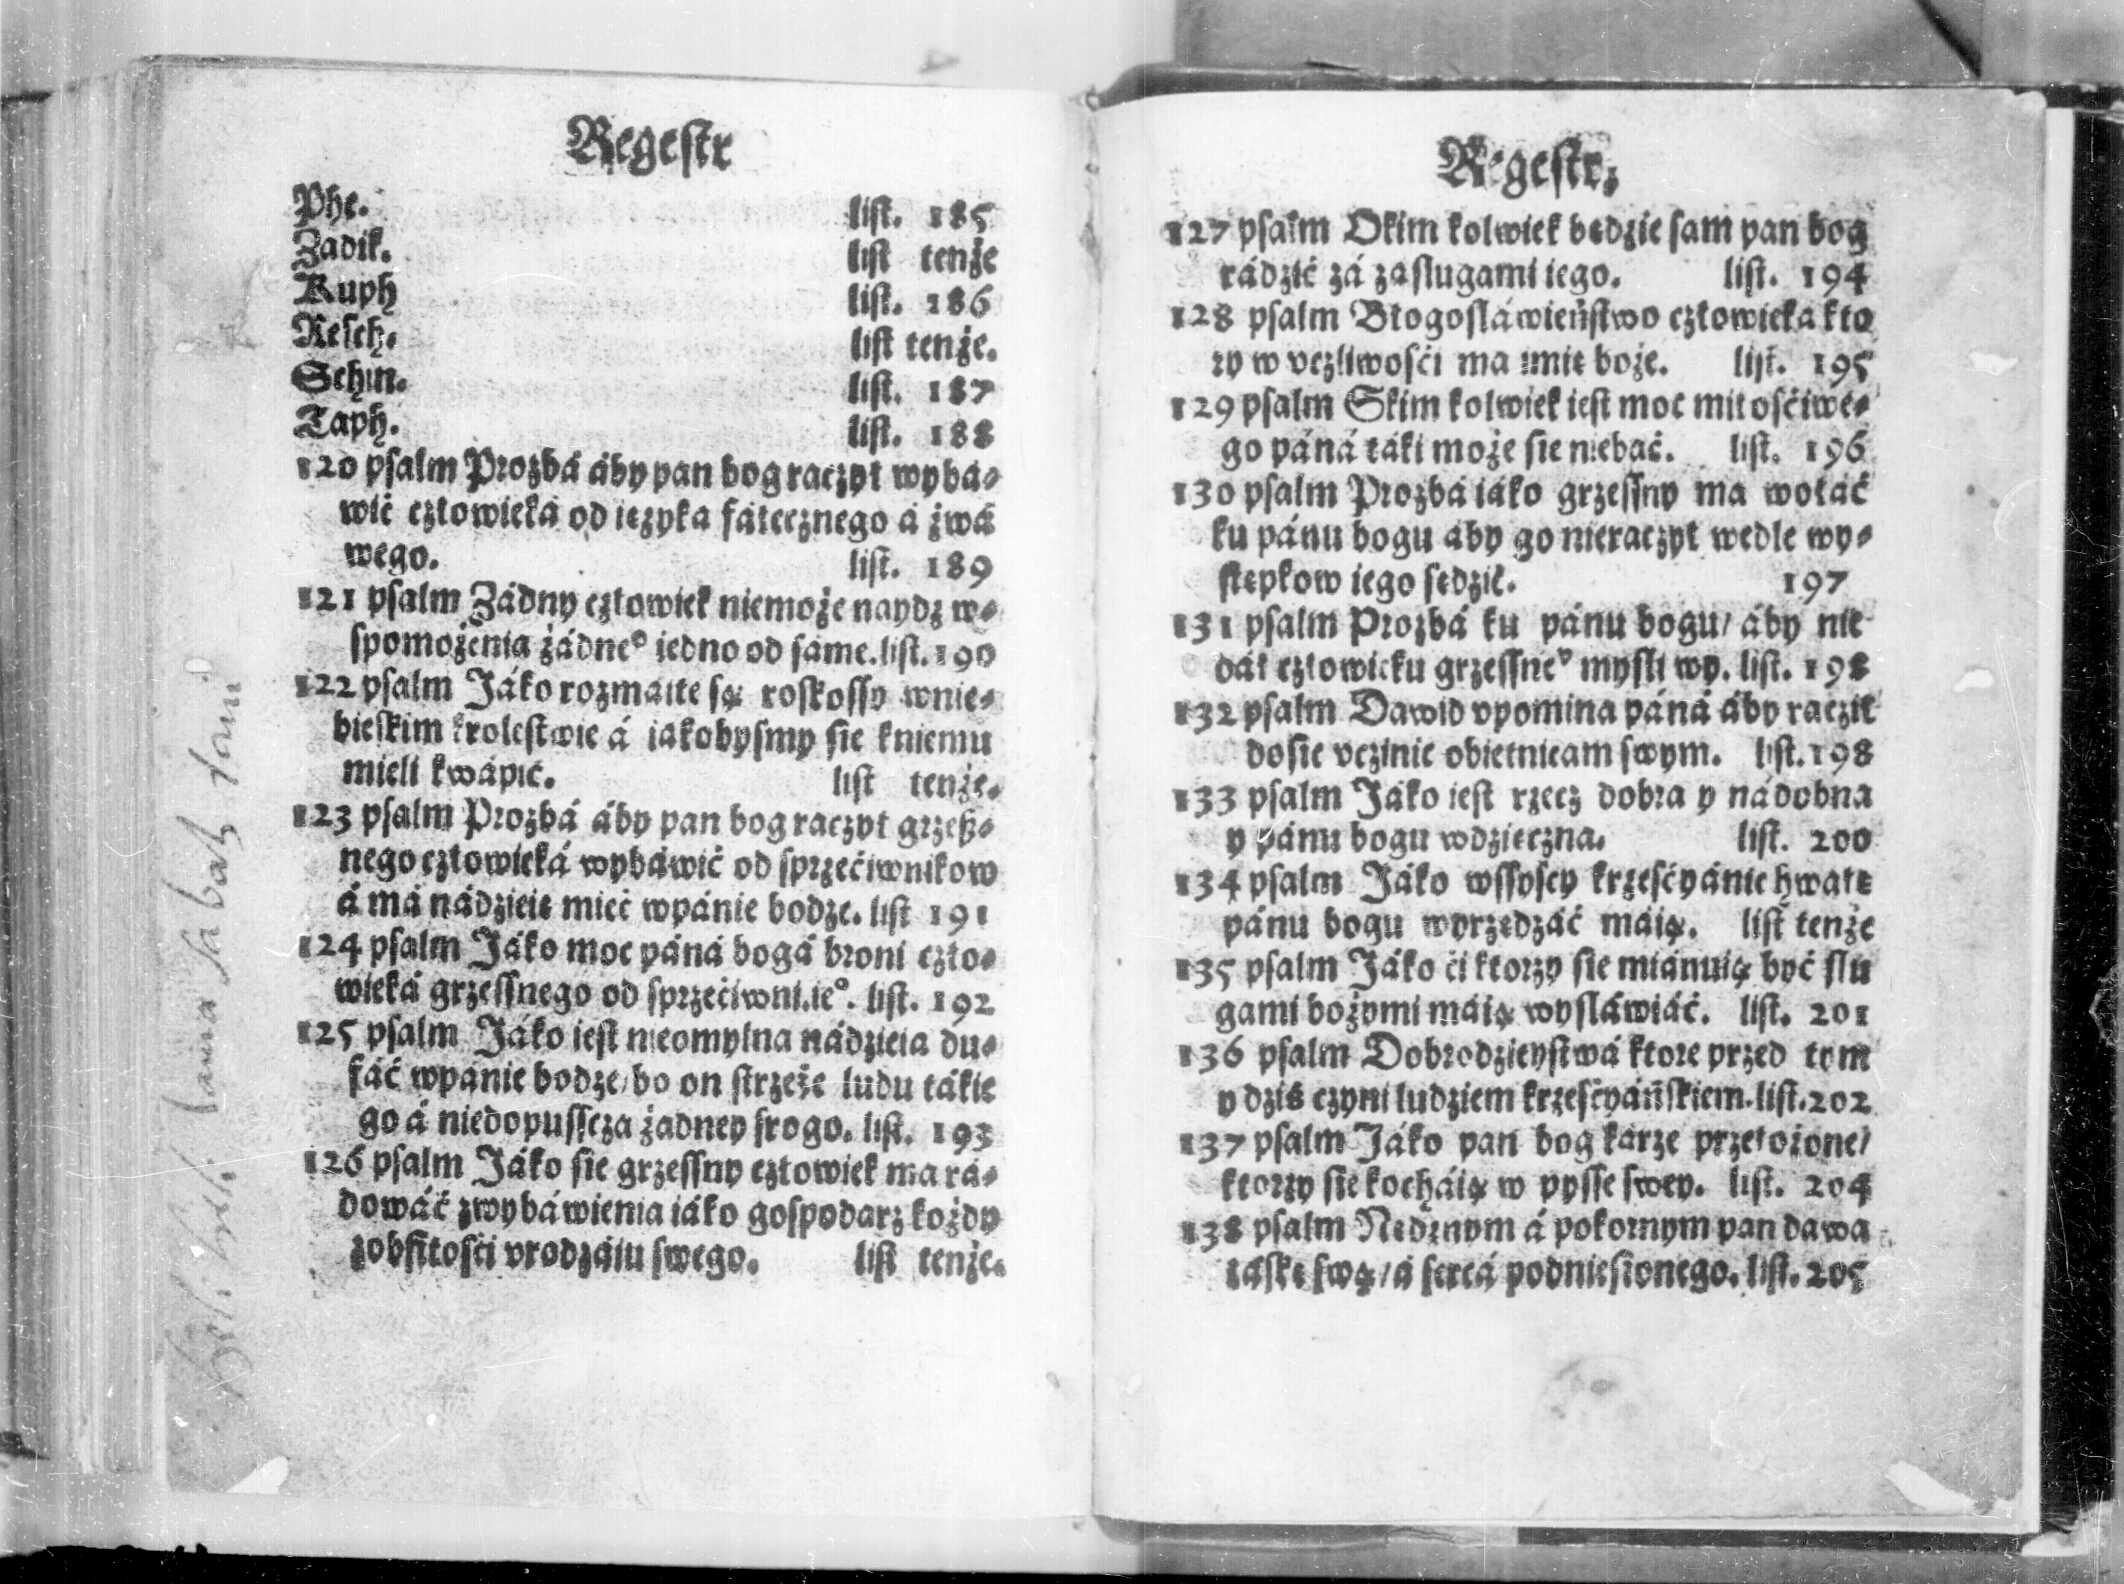 Regestr
Phe. list. 185
Zadik. list tenże
Kuph list. 186
Resch. list tenże.
Schin. list. 187
Taph. list. 188
120 psalm Prozbá áby pan bog raczył wybá-
wić człowieká od ięzyka fałecznego á żwá
wego. list. 189
121 psalm Żádny człowiek niemoże naydz w-
spomożenia żádne° iedno od same. list. 190
122 psalm Jáko rozmaite są roskossy wnie-
bieskim krolestwie á iakobysmy sie kniemu
mieli kwápić. list tenże.
123 psalm Prozbá áby pan bog raczył grzeß-
nego człowieká wybáwić od sprzećiwnikow
á má nádzieię mieć wpánie bodze. list 191
124 psalm Jáko moc páná bogá broni czło-
wieká grzessnego od sprzećiwni.ie°. list. 192
125 psalm Jáko iest nieomylna nádzieia du-
fáć wpánie bodze/ bo on strzeże ludu tákie
go á niedopusscza żadney srogo. list. 193
126 psalm Jáko sie grzessny człowiek ma rá-
dowáć zwybáwienia iáko gospodarz kożdy
zobfitosći vrodzáiu swego. list tenże.
Regestrz
127 psalm Okim kolwiek będzie sam pan bog
rádzić zá zaslugami iego. list. 194
128 psalm Błogosláwieństwo człowieka kto
ry w vczliwosći ma imię boże. list. 195
129 psalm Skim kolwiek iest moc miłosćiwe-
go páná táki może sie niebać. list. 196
130 psalm Prozbá iáko grzessny ma wołáć
ku pánu bogu áby go nieraczył wedle wy-
stępkow iego sędzić. 197
131 psalm Prozbá ku pánu bogu/ áby nie
dáł człowieku grzessne° mysli wy. list. 198
132 psalm Dawid vpomina páná áby racził
dosic vczinic obietnicam swym. list. 198
133 psalm Jáko iest rzecz dobra y nádobna
y pánu bogu wdzięczna. list. 200
134 psalm Jáko wssyscy krzesćyánie hwałę
pánu bogu wyrzędzáć máią. list tenże
135 psalm Jáko ći ktorzy sie miánuią być slu
gami bożymi máią wysláwiáć. list. 201
136 psalm Dobrodzieystwá ktore przed tym
y dziś czyni ludziem krzesćyáńskiem. list. 202
137 psalm Jáko pan bog karze przełożone/
ktorzy sie kocháią w pysse swey. list. 204
138 psalm Nędznym á pokornym pan dawa
łáskę swą/ á sercá podniesionego. list. 205